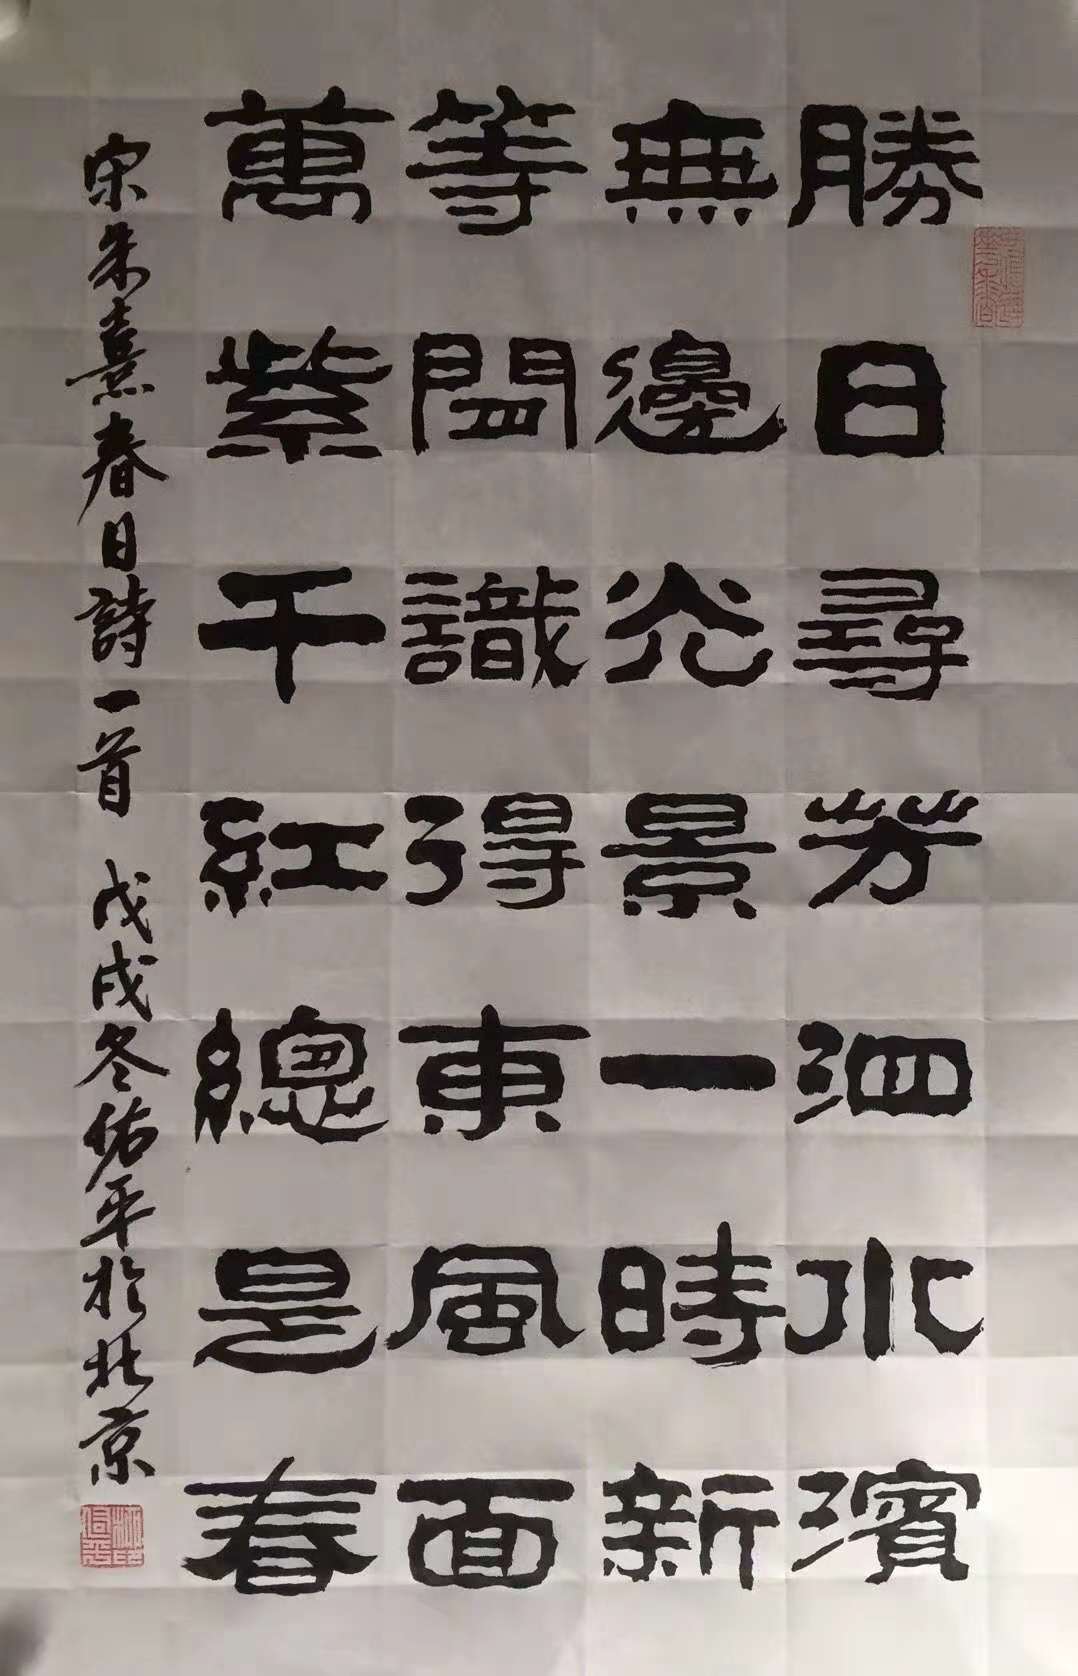 勝日尋芳泗水濱
無邊光景一時新
等閒識得東風面
萬紫千紅總是春
宋朱熹春日詩一首 戊戌冬佑平於北京